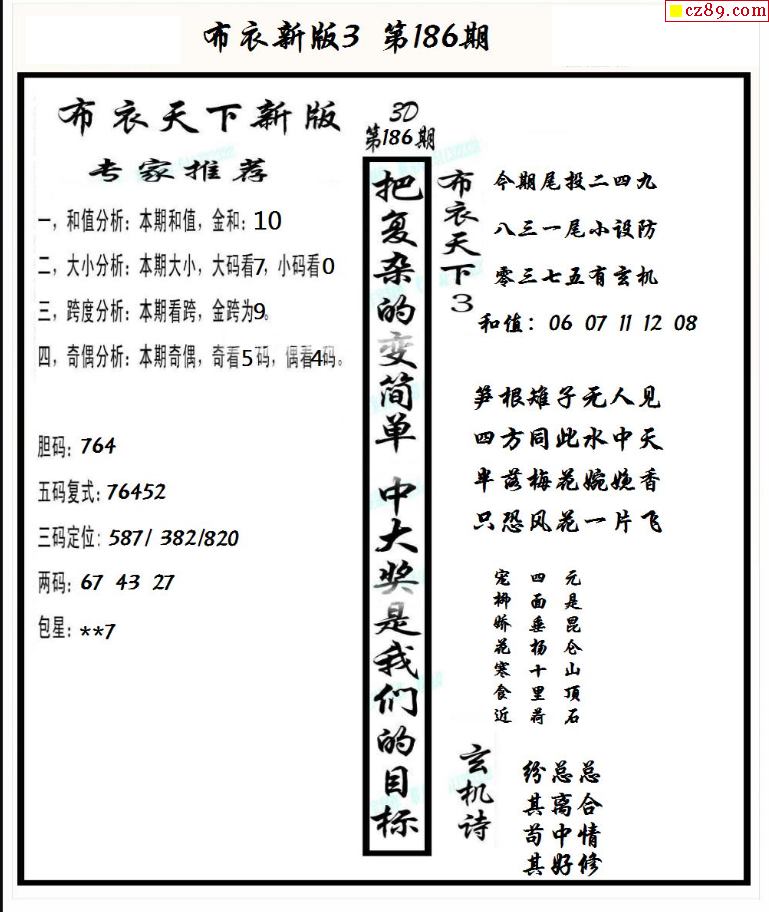 cz89.com
布衣新版3 第186期
布衣天下新版
专家推荐
一，和值分析：本期和值，金和：10
二，大小分析：本期大小，大码看7，小码看0
三，跨度分析：本期看跨，金跨为9。
四，奇偶分析：本期奇偶，奇看5码，偶看4码。
胆码：764
五码复式：76452
三码定位：587/ 382/820
两码：67 43 27
包星：**7
3D
第186期
把复杂的变简单 中大奖是我们的目标
布衣天下3
今期尾投二四九
八三一尾小设防
零三七五有玄机
和值：06 07 11 12 08
笋根雉子无人见
四方同此水中天
半落梅花婉娩香
只恐风花一片飞
元是昆仑山顶石
四面垂杨十里荷
宠柳娇花寒食近
玄机诗
纷总总
其离合
苟中情
其好修